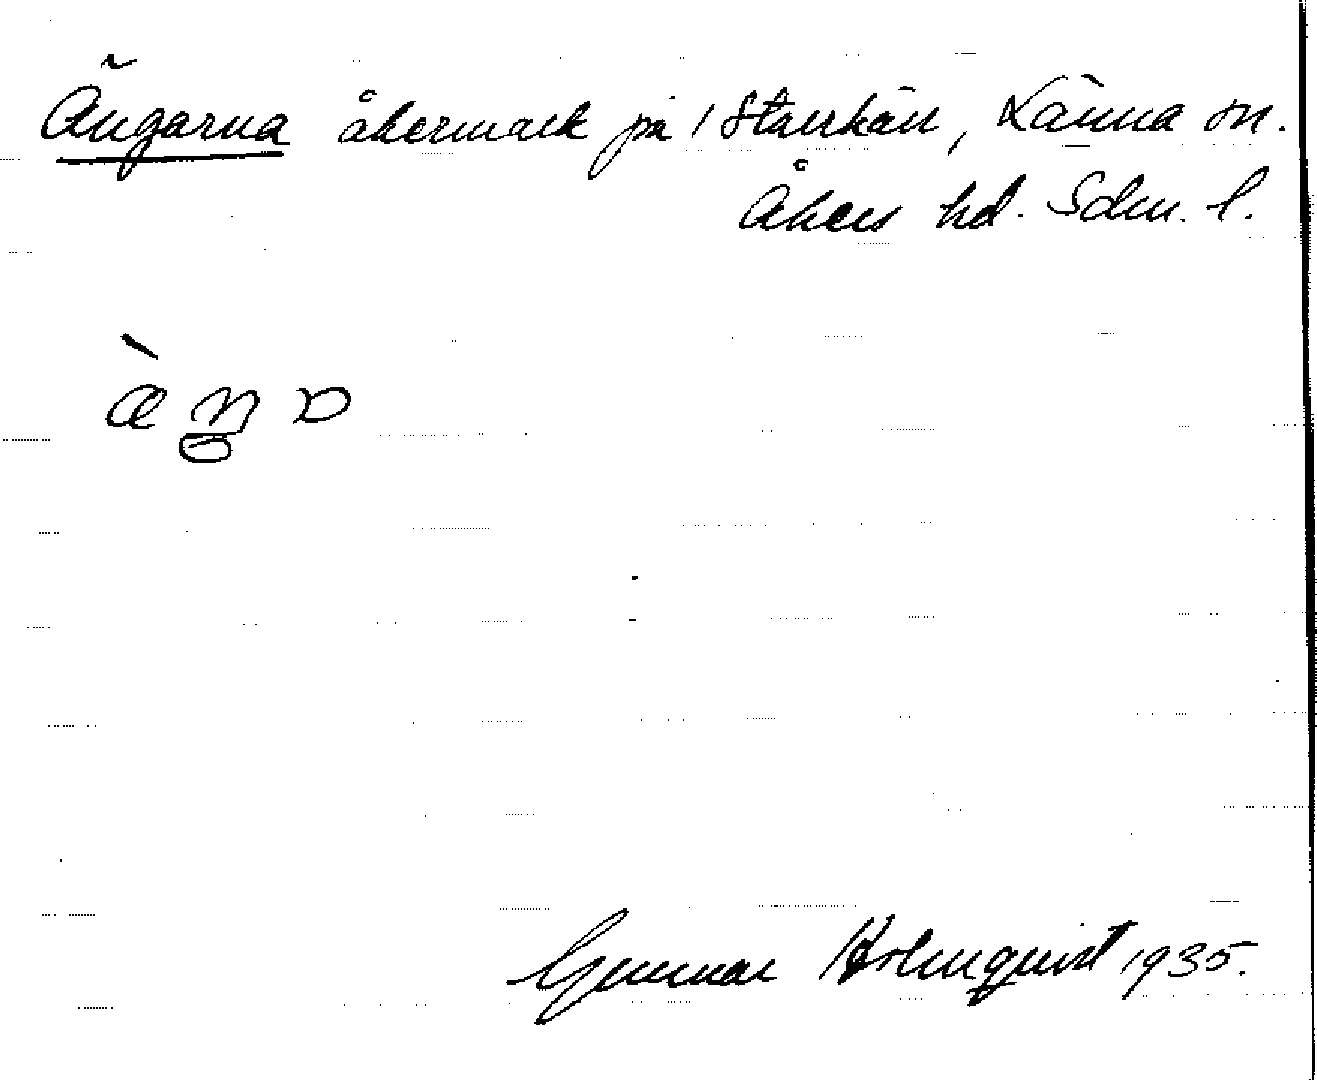 Ängarna åkermark på 1 Starrkärr, Länna sn.
Åkers hd. Sdm. l.
Gunnar Holmquist 1935.